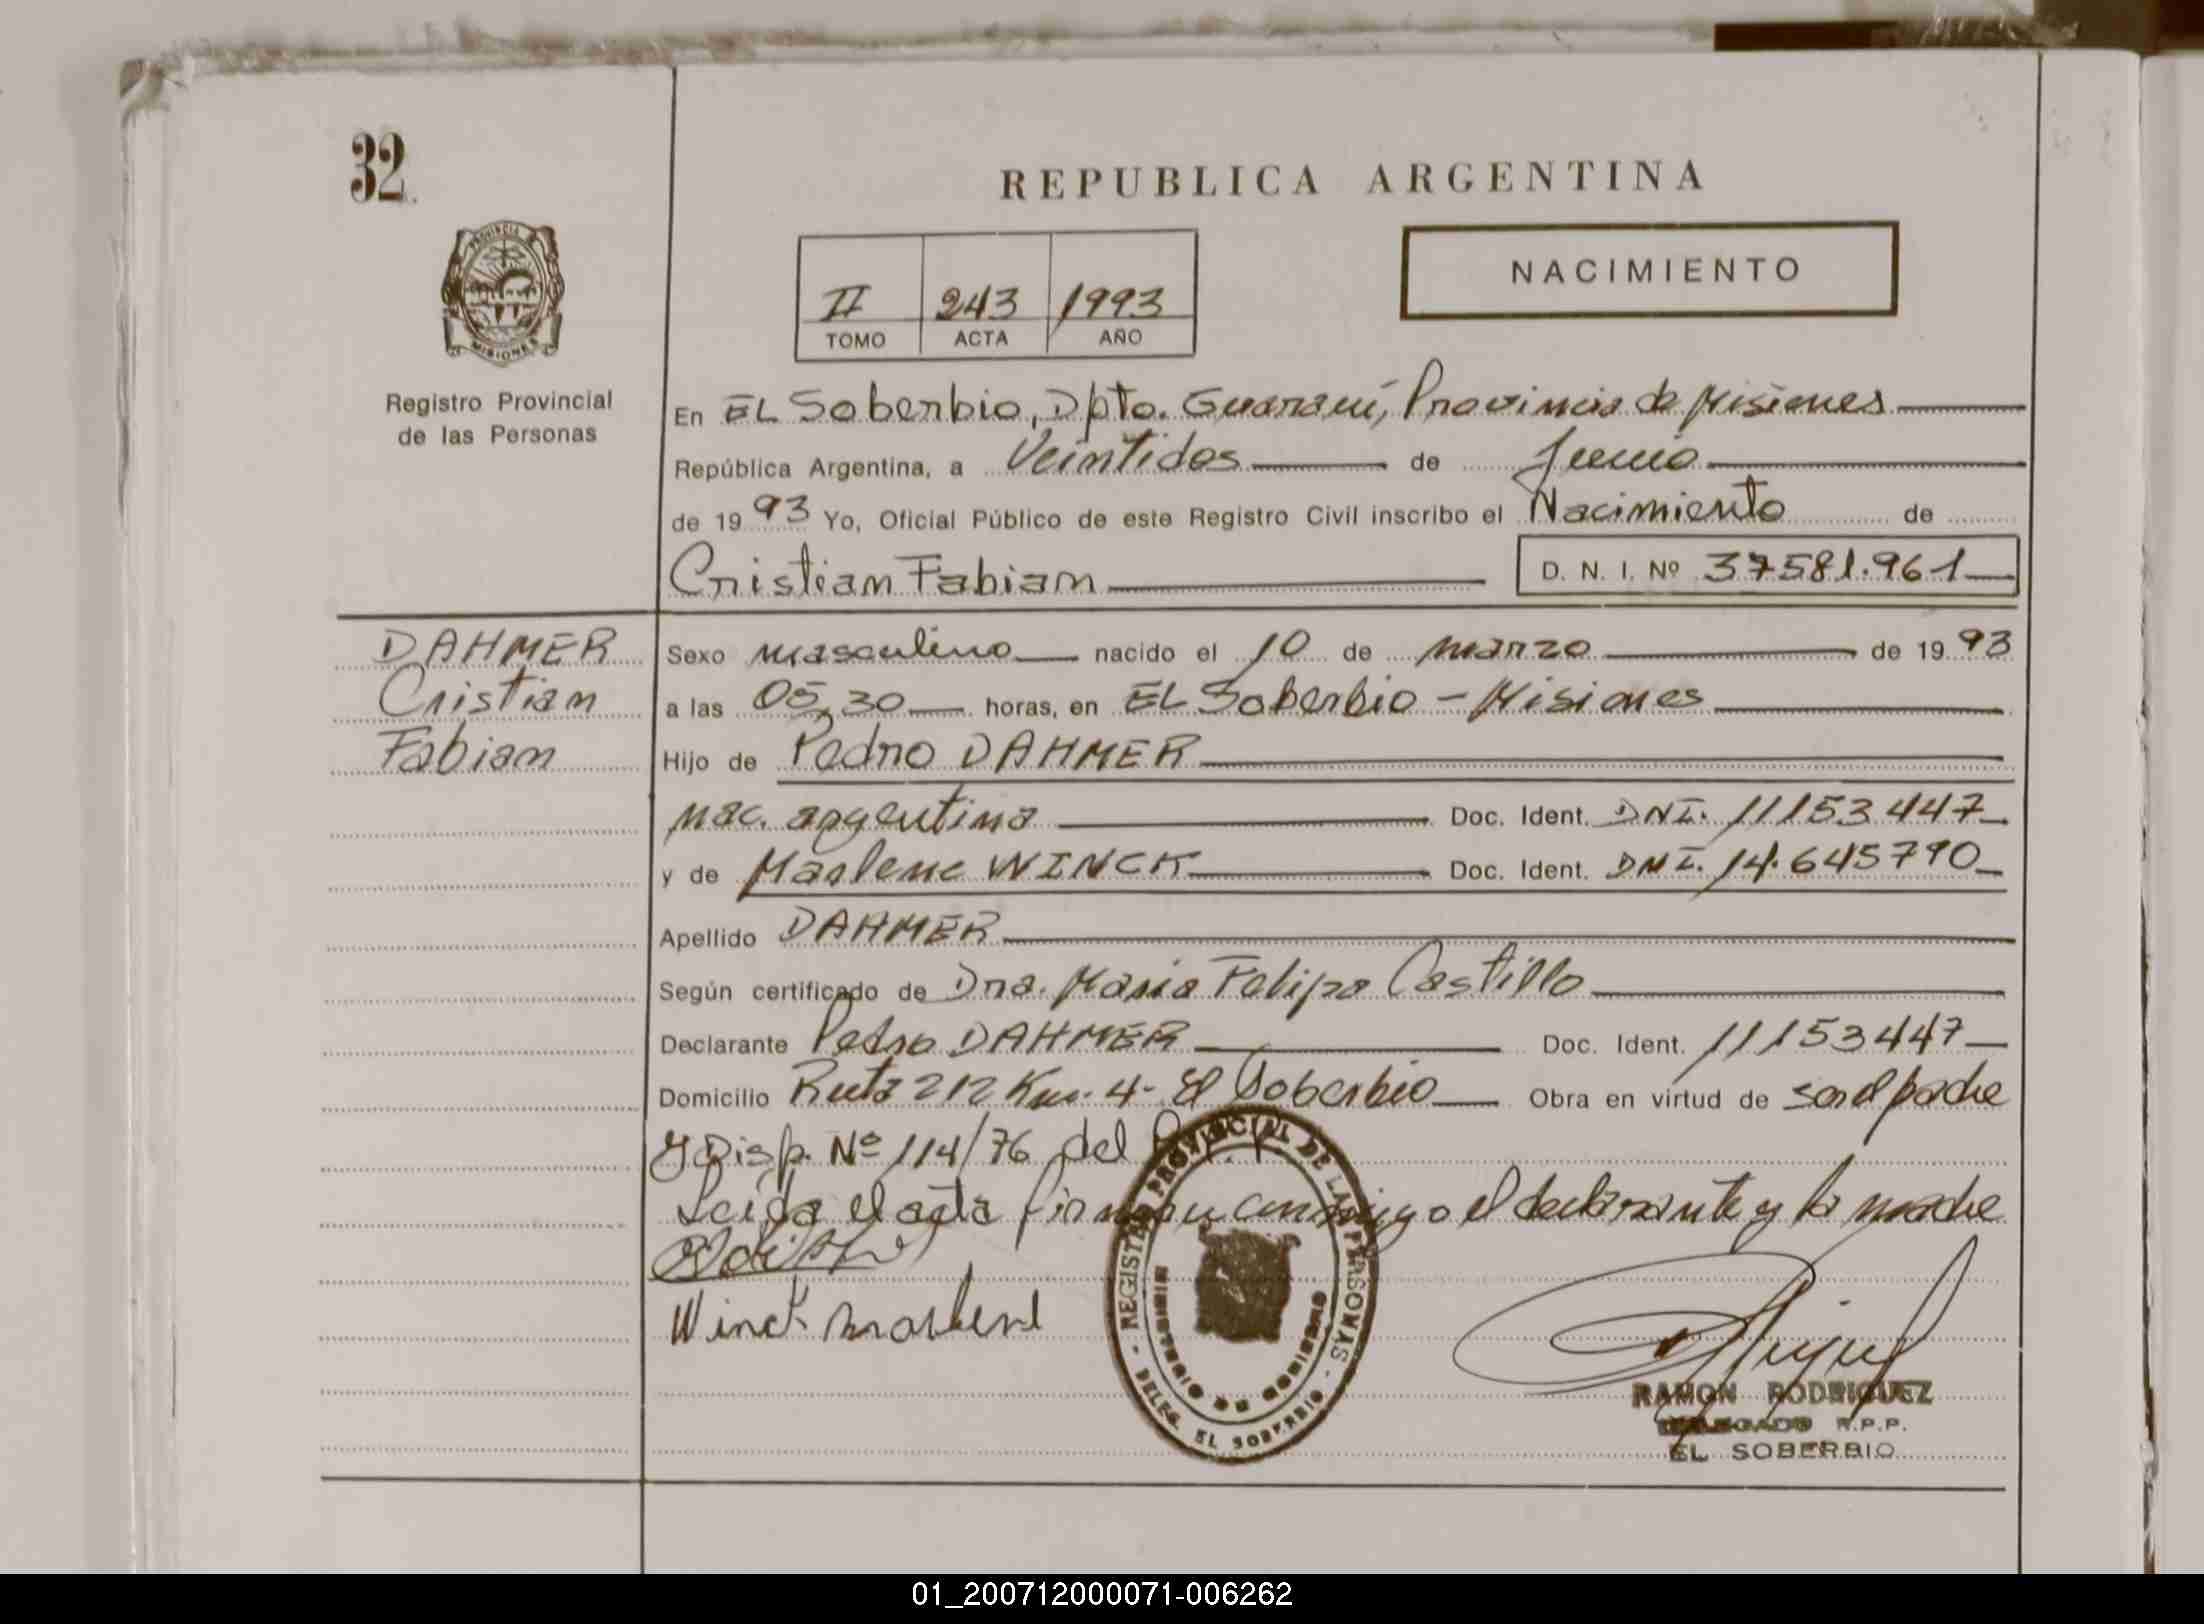 32
REPUBLICA ARGENTINA
PROVINCIA DE
MISIONES
Registro Provincial
de las Personas
II 243 1993
TOMO ACTA AÑO
NACIMIENTO
En EL Soberbio, Dpto. Guaraní, Provincia de Misiones
República Argentina, a Veintidos de Junio
de 1993 Yo, Oficial Público de este Registro Civil inscribo el Nacimiento de
Cristian Fabian D. N. I. Nº 37581.961
DAHMER
Cristian
Fabian
Sexo masculino nacido el 10 de marzo de 1993
a las 05,30 horas, en EL Soberbio - Misiones
Hijo de Pedro DAHMER
nac. argentina Doc. Ident. DNI. 11153447
y de Marlene WINCK Doc. Ident. DNI. 14.645790
Apellido DAHMER
Según certificado de Dra. Maria Felipa Castillo
Declarante Pedro DAHMER Doc. Ident. 11153447
Domicilio Ruta 212 Km. 4- El Soberbio Obra en virtud de ser el padre
y Disp. Nº 114/76 del
Leida el acta firman conmigo el declarante y la madre
Winck marlene
REGISTRO PROVINCIAL DE LAS PERSONAS
MINISTERIO DE GOBIERNO
- DELEG. EL SOBERBIO -
RAMON RODRIGUEZ
DELEGADO R.P.P.
EL SOBERBIO
01_200712000071-006262